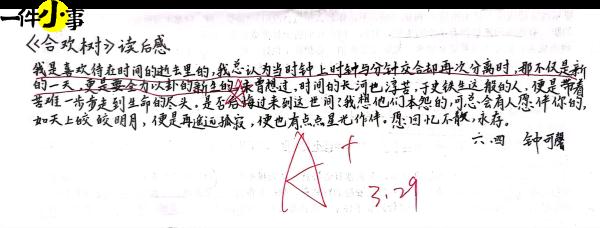 一件小事
《合欢树》读后感
我是喜欢待在时间的逝去里的,我总认为当时钟上时针与分针交合却再次分离时,那不仅是新
的一天,更是要全力以赴的新生的。未曾想过,时间的长河也浮苦,于史铁生这般的人,便是带着
苦难一步步走到生命的尽头,是否会悔过来到这世间?我想他们本怨的,可总会有人愿伴你的,
如天上皎皎明月,便是再遥远孤寂,便也有点点星光作伴。愿回忆不散,永存。
六.四 钟可馨
A+
3.29